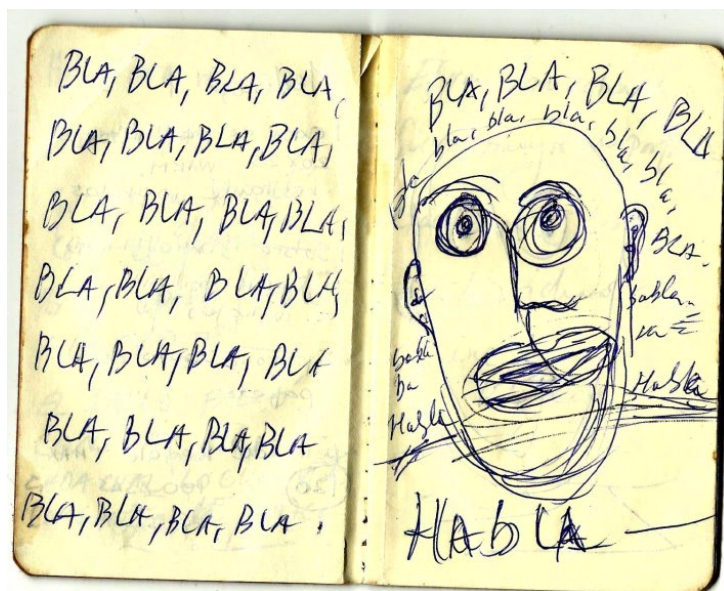 BLA, BLA, BLA, BLA,
BLA, BLA, BLA, BLA,
BLA, BLA, BLA, BLA,
BLA, BLA, BLA, BLA,
BLA, BLA, BLA, BLA
BLA, BLA, BLA, BLA
BLA, BLA, BLA, BLA.
BLA, BLA, BLA, BLA
bla, bla, bla, bla, bla, bla,
BLA.
Habla
Habla
HAbLA